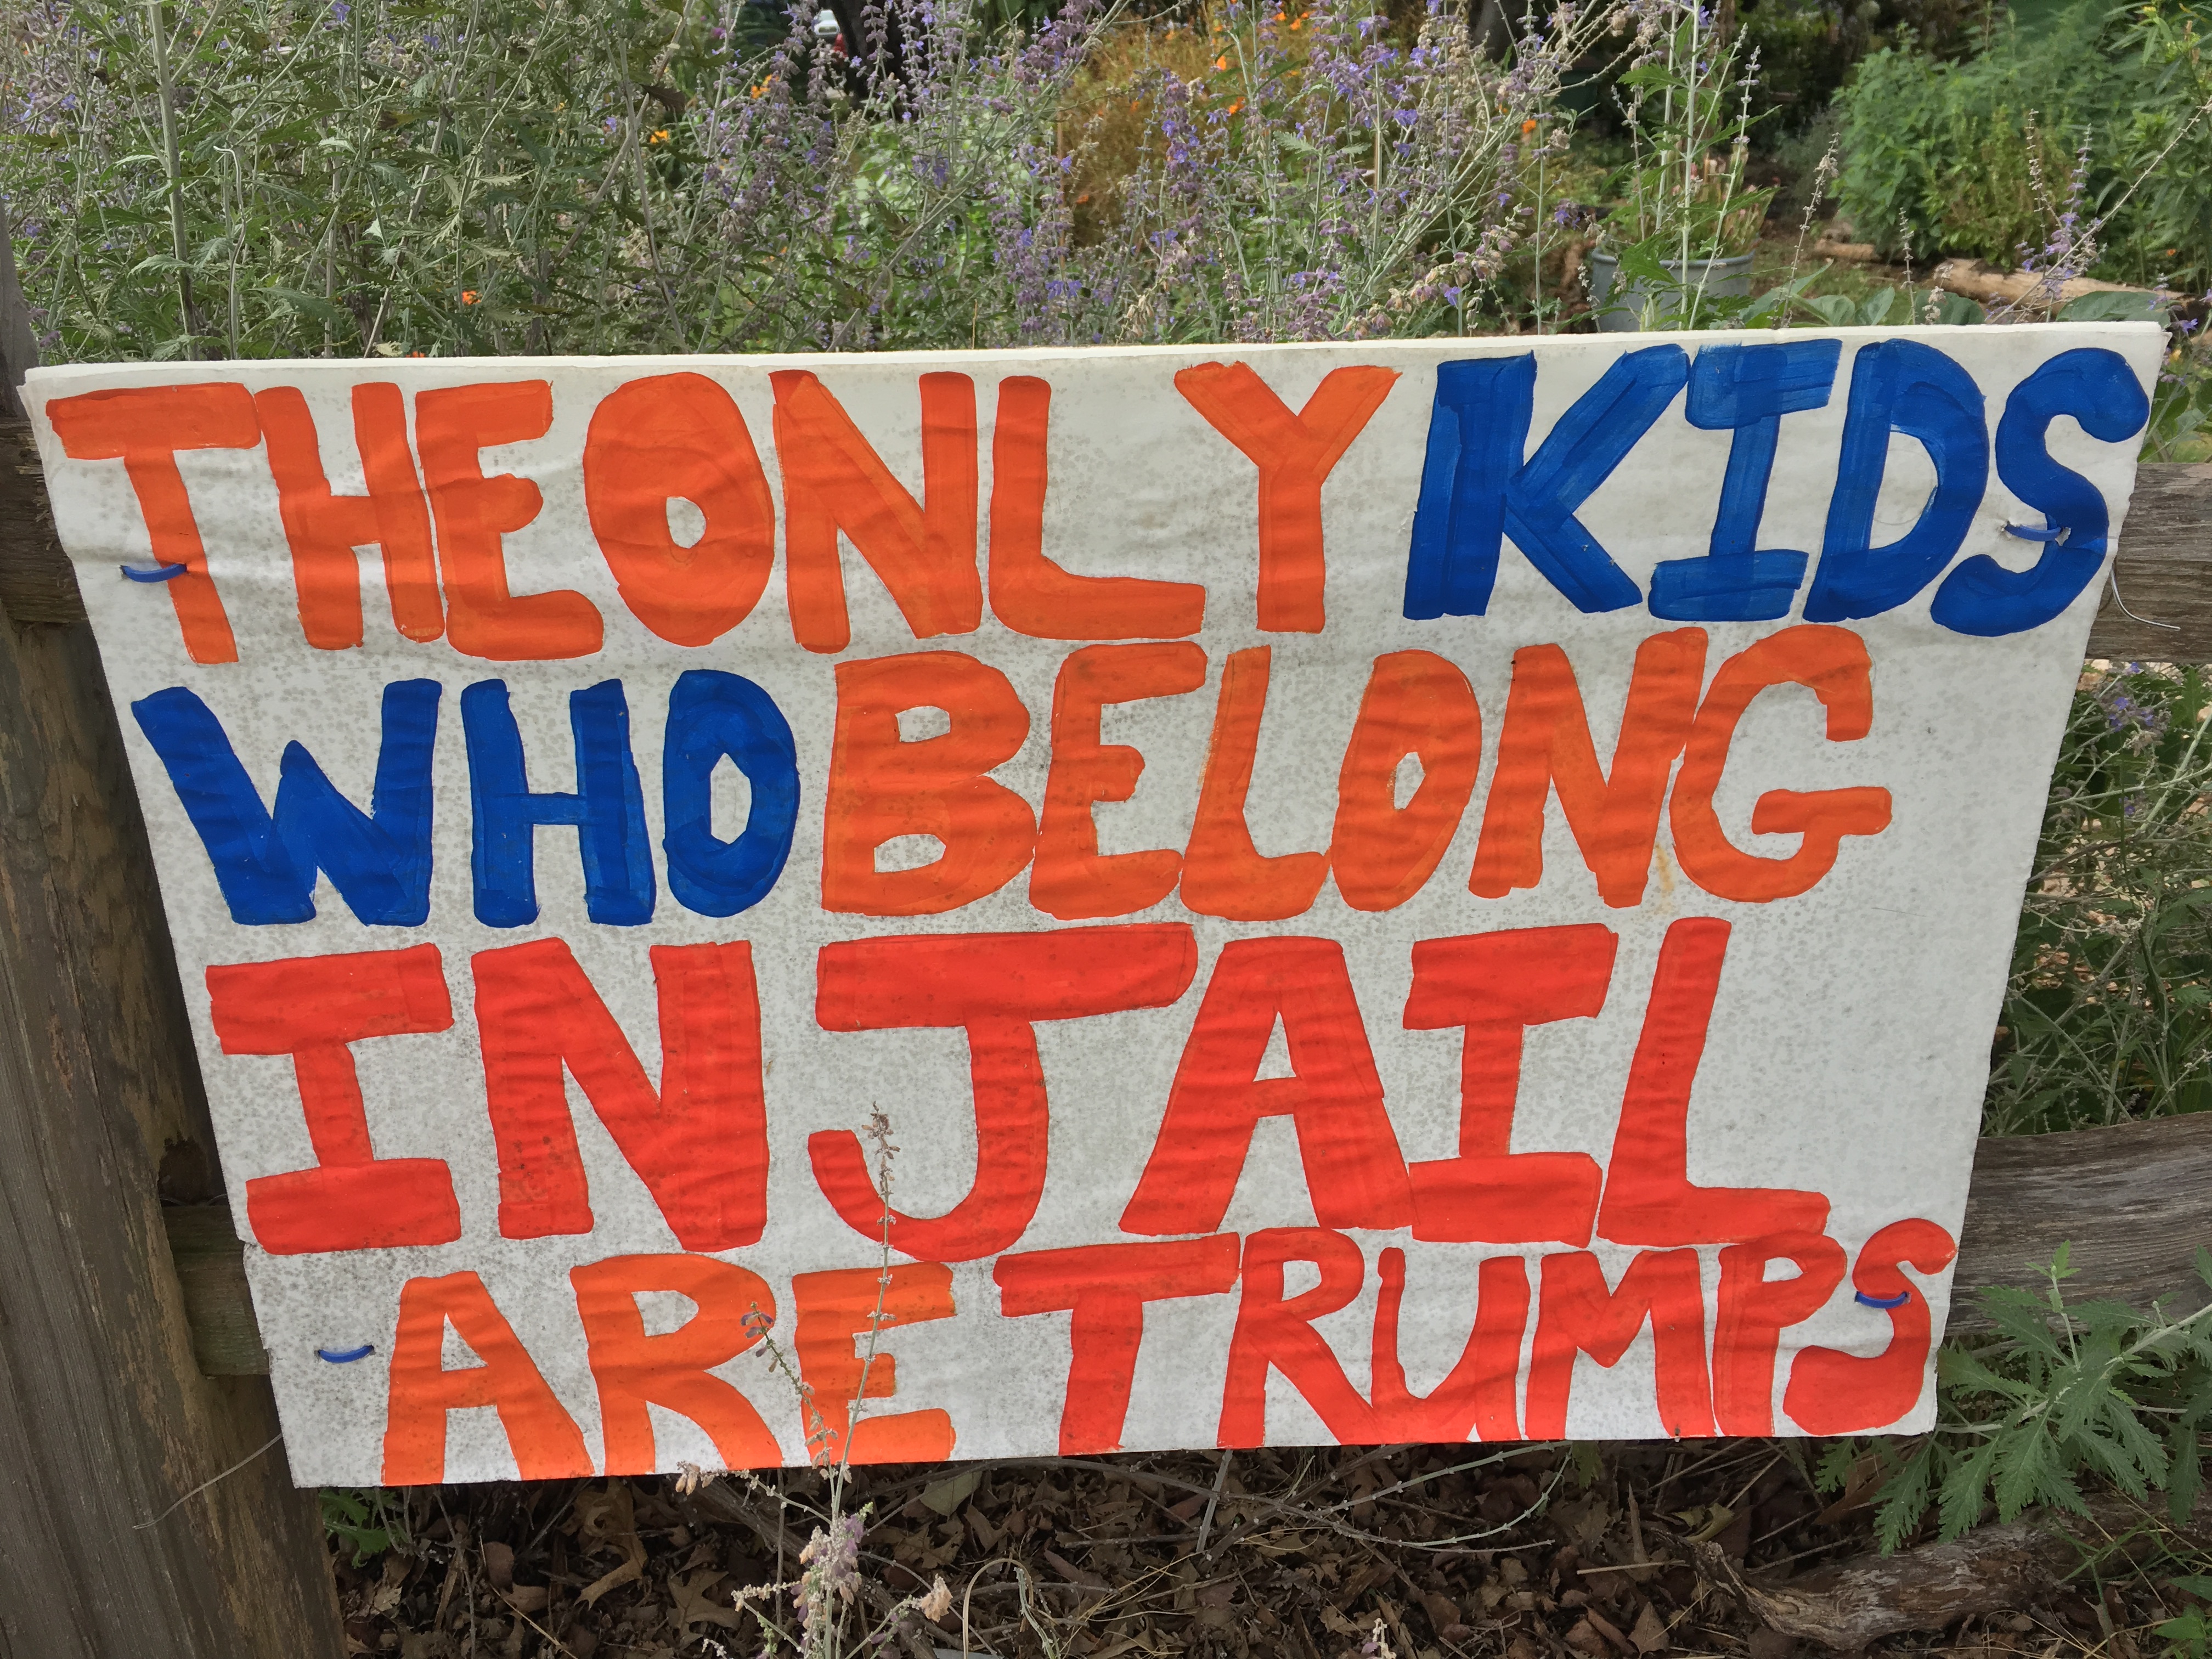 THE ONLY KIDS
WHO BELONG
IN JAIL
ARE TRUMPS